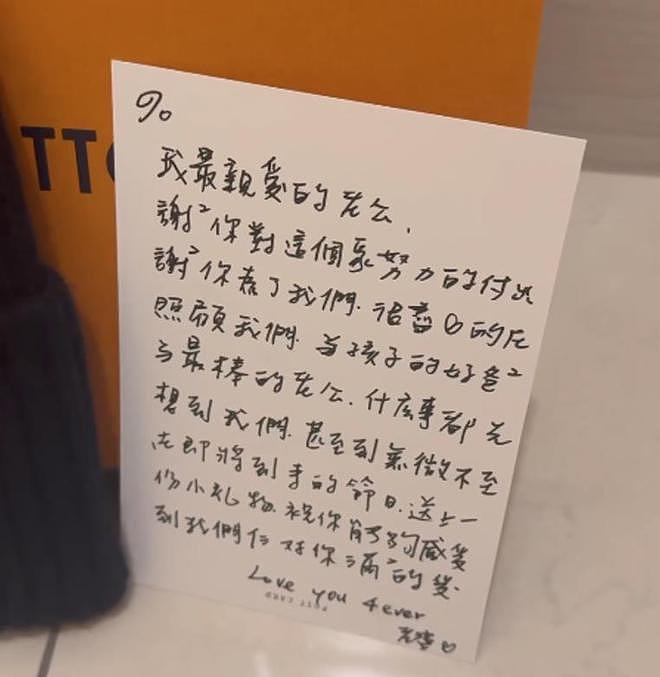 TTO
To
我最親愛的老公,
謝²你對這個家努力的付出
謝²你為了我們.
照顧我們.當孩子的好爸²
與最棒的老公.什麼事都先
想到我們.甚至到無微不至
在即將到手的節日.送上一
份小礼物.祝你能夠感受
到我們仨对你滿²的愛.
Love you 4ever
POST CARD
老婆♡